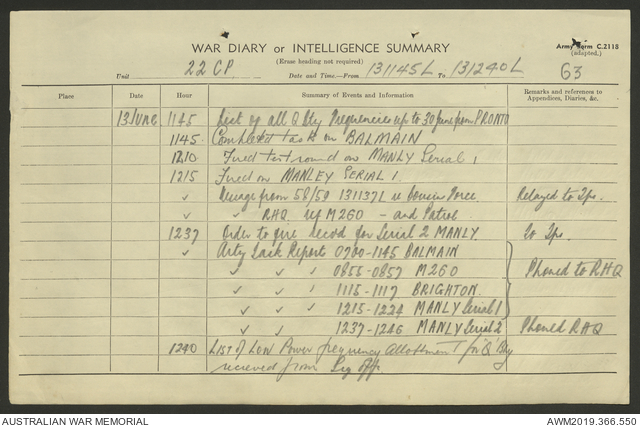 Army Form C.2118
(adapted.)
WAR DIARY or INTELLIGENCE SUMMARY
(Erase heading not required)
63
Unit 22 CP Date and Time.—From 131145L To 131240L
Place Date Hour Summary of Events and Information Remarks and references to Appendices, Diaries, &c.
13 June 1145 List of all Q Bty frequencies up to 30 June from PRONTO
1145 Completed task on BALMAIN
1210 Fired test round on MANLY Serial 1
1215 Fired on MANLEY SERIAL 1.
✓ from 58/59 131137L Relayed to
✓ ✓ RHQ M260 - and Patrol
1237 Order to fire for Serial 2 MANLY. to
✓ Arty Task Report 0700-1145 BALMAIN
✓ ✓ ✓ 0855-0857 M260 Phoned to RHQ
✓ ✓ ✓ 1115-1117 BRIGHTON.
✓ ✓ ✓ 1215-1224 MANLY Serial 1
✓ ✓ ✓ 1237-1246 MANLY Serial 2 Phoned RHQ
1240 LIST of LOW Power frequency Allottment for 'Q' Bty
recieved from Sig Off.
AUSTRALIAN WAR MEMORIAL AWM2019.366.550